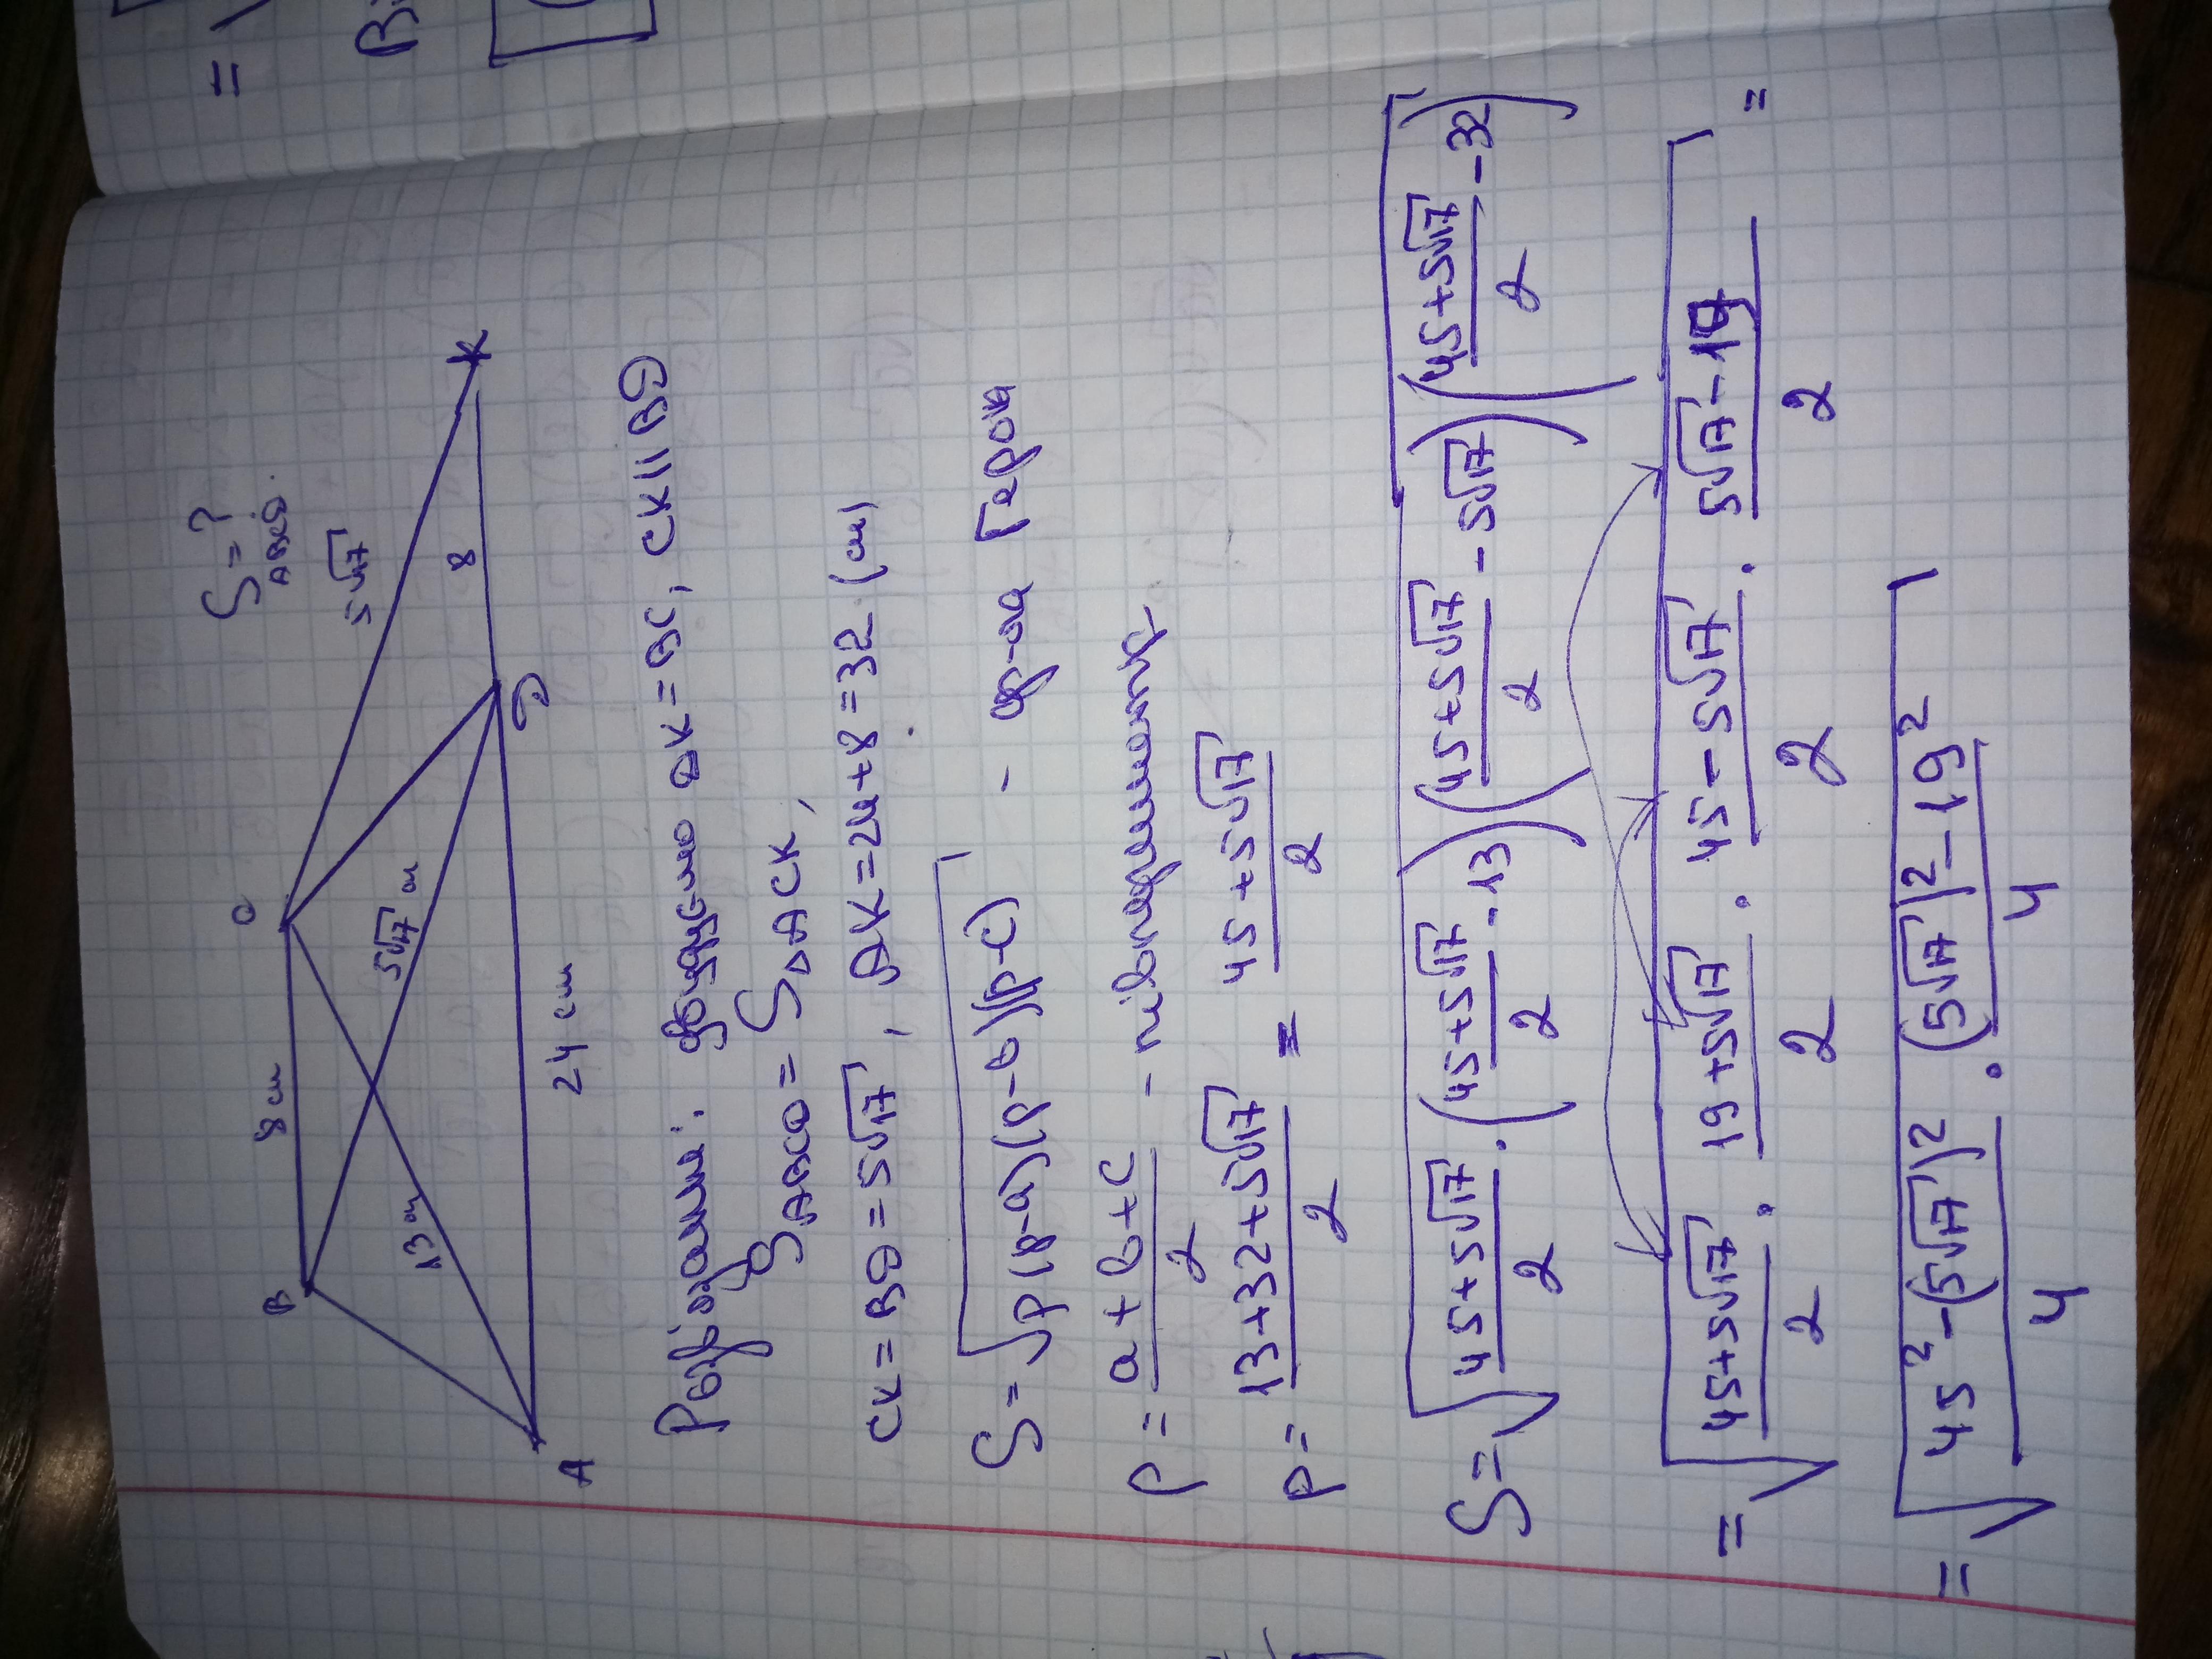 S = ?
ABCD.
B
8 см
C
5√17
K
13 см
5√17 см
8
A
24 см
D
Розв'язання: добудуємо DK = BC, CK || BD
S ABCD = S△ACK,
CK = BD = 5√17, AK = 24 + 8 = 32 (см)
S = √p(p-a)(p-b)(p-c) - ф-ла Герона
p = (a + b + c)/2 - півпериметр
p = (13 + 32 + 5√17)/2 = (45 + 5√17)/2
S = √(45 + 5√17)/2 · ((45 + 5√17)/2 - 13)((45 + 5√17)/2 - 5√17)((45 + 5√17)/2 - 32)
= √(45 + 5√17)/2 · (19 + 5√17)/2 · (45 - 5√17)/2 · (5√17 - 19)/2 =
= √(45² - (5√17)²)/4 · ((5√17)² - 19²)/4
=√